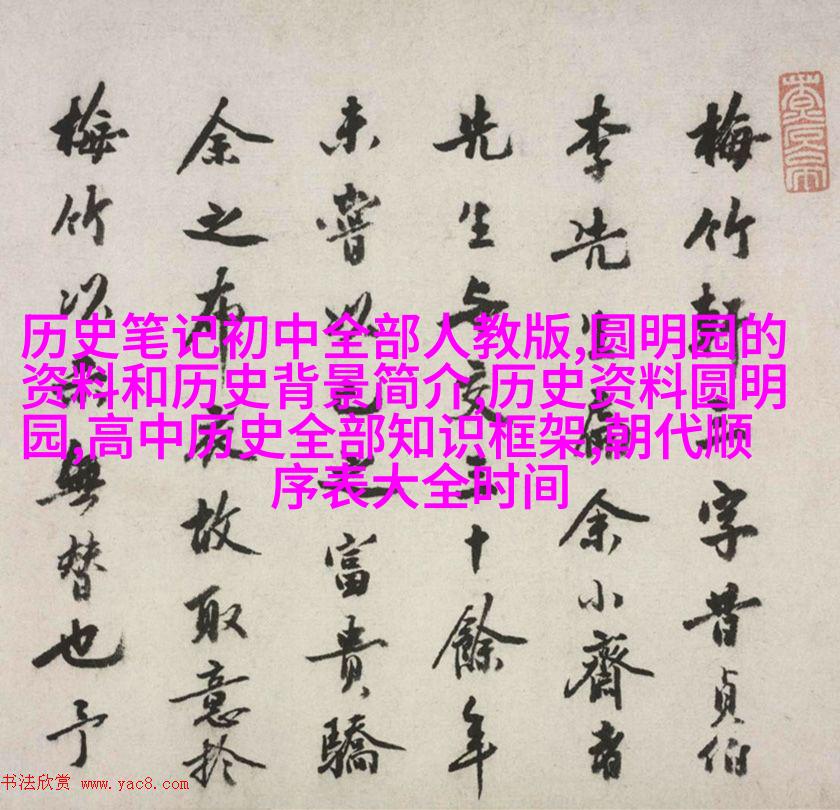 历史笔记初中全部人教版,圆明园的
资料和历史背景简介,历史资料圆明
园,高中历史全部知识框架,朝代顺
序表大全时间
梅竹二字昔貞伯
李先生余小齋者
先生与交三十餘年
未嘗以之富貴驕
余之布故取意於
梅竹以無替也予
书法欣赏 www.yac8.com